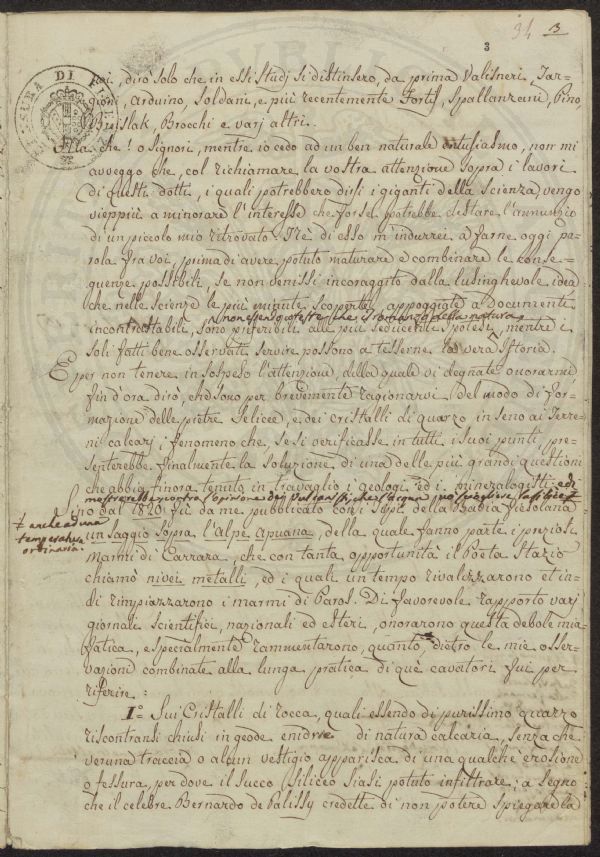 34 3
3
voi, dirò solo che in essi studj si distinsero, da prima Valisneri, Tar-
gioni, Arduino, Soldani, e più recentemente Fortis, Spallanzani, Pino,
Breislak, Brocchi e varj altri.
Ma che! o Signori, mentre io cedo ad un ben naturale entusiasmo, non mi
avveggo che, col richiamare la vostra attenzione sopra i lavori
di questi dotti, i quali potrebbero dirsi i giganti della Scienza, vengo
vieppiù a minorare l'interesse che forse potrebbe destare l'annunzio
di un piccolo mio ritrovato. Nè di esso m'indurrei a farne oggi pa-
rola fra voi, prima di avere potuto maturare e combinare le conse-
guenze possibili, se non venissi incoraggito dalla lusinghevole idea
che nelle Scienze le più minute scoperte, appoggiate a documenti
non essendo queste che il romanzo della natura,
incontrastabili, sono preferibili alle più seducenti Ipotesi, mentre i
soli fatti bene osservati servire possono a tesserne la vera Istoria.
E per non tenere in sospeso l'attenzione, della quale vi degnate onorarmi
fin d'ora dirò, che sono per brevemente ragionarvi del modo di for-
mazione delle pietre Selicee, e dei cristalli di quarzo in seno ai Terre-
ni calcarj; fenomeno che se si verificasse in tutti i suoi punti, pre-
senterebbe finalmente la soluzione di una delle più grandi questioni
che abbia finora tenuti in travaglio i geologi ed i mineralogisti; ed
mostrerebbe contro l'opinione dei Vulcanisti, che l'acqua può sciogliere la silice ŧ
Sino dal 1820 fù da me pubblicato con i tipi della Badia Fiesolana
ŧ anche ad una
temperatura
ordinaria.
un Saggio sopra l'Alpe Apuana, della quale fanno parte i preziosi
Marmi di Carrara, che con tanta opportunità il Poeta Stazio
chiamò nivei metalli, ed i quali un tempo rivalizzarono et in-
di rimpiazzarono i marmi di Paros. Di favorevole rapporto varj
giornali Scientifici, nazionali ed esteri, onorarono questa debole mia
fatica, e specialmente rammentarono, quanto, dietro le mie osser-
vazioni combinate alla lunga pratica di què cavatori fui per
riferire:
I.° Sui Cristalli di rocca, quali essendo di purissimo quarzo
riscontransi chiusi in geode enidrie di natura calcaria, senza che
veruna traccia o alcun vestigio apparisca di una qualche erosione
o fessura, per dove il succo Siliceo siasi potuto infiltrare; a segno
che il celebre Bernardo de Palissy credette di non potere spiegare la